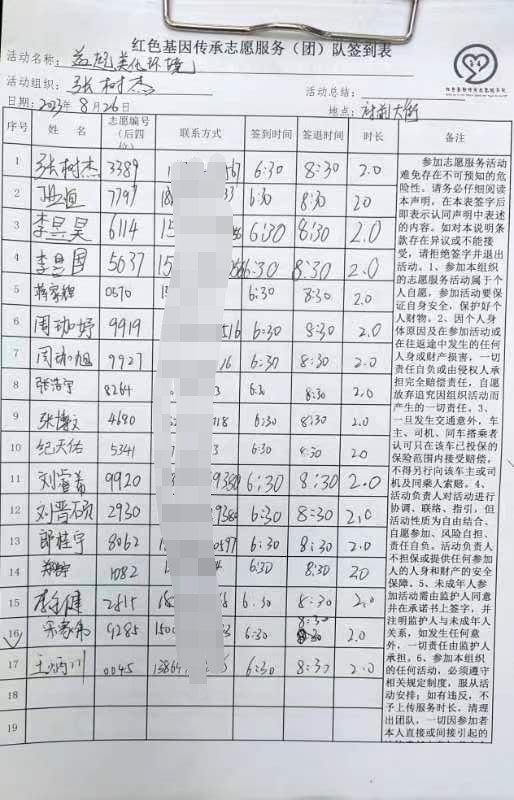 红色基因传承志愿服务（团）队签到表
活动名称：美化环境
红色基因传承志愿服务队
活动组织：张树杰 活动总结：
日期：2023年8月26日 地点：府前大街
序号 姓名 志愿编号（后四位） 联系方式 签到时间 签退时间 时长 备注
1 张树杰 3389 6:30 8:30 2.0
2 7797 6:30 8:30 2.0
3 李昱昊 6114 15 6:30 8:30 2.0
4 5037 15 6:30 8:30 2.0
5 0570 6:30 8:30 2.0
6 周珈妤 9919 516 6:30 8:30 2.0
7 周珈旭 9927 16 6:30 8:30 2.0
8 张洁宇 8264 6:30 8:30 2.0
9 张博文 4690 318 6:30 8:30 2.0
10 纪天佑 5341 6:30 8:30 2.0
11 9920 6:30 8:30 2.0
12 刘晋硕 2930 6:30 8:30 2.0
13 郎桂宇 8062 0597 6:30 8:30 2.0
14 1082 6:30 8:30 2.0
15 2815 6:30 8:30 2.0
16 9285 6:30 8:30 2.0
17 王炳川 0045 13864 6:30 8:30 2.0
18
19
参加志愿服务活动
难免存在不可预知的危
险性。请务必仔细阅读
本声明，在本表签字后
即表示认同声明中表述
的内容。如对本说明条
款存在异议或不能接
受，请拒绝签字并退出
活动。1、参加本组织
的志愿服务活动属于个
人自愿，参加活动要保
证自身安全，保护好个
人财物。2、因个人身
体原因及在参加活动或
在往返途中发生的任何
人身或财产损害，一切
责任自负或由侵权人承
担完全赔偿责任，自愿
放弃追究因组织活动而
产生的一切责任。3、
一旦发生交通意外，车
主、司机、同车搭乘者
认可只在该车已投保的
保险范围内接受赔偿。
不得另行向该车主或司
机及同乘人索赔。4、
活动负责人对活动进行
协调、联络、指引，但
活动性质为自由结合、
自愿参加、风险自担、
责任自负。活动负责人
不担保或提供任何参加
人的人身和财产的安全
保障。5、未成年人参
加活动需由监护人同意
并在承诺书上签字，并
注明监护人与未成年人
关系，如发生任何意
外，一切责任由监护人
承担。6、参加本组织
的任何活动，必须遵守
相关规定制度，服从活
动安排；如有违反，不
予上传服务时长，清理
出团队，一切因参加者
本人直接或间接引起的